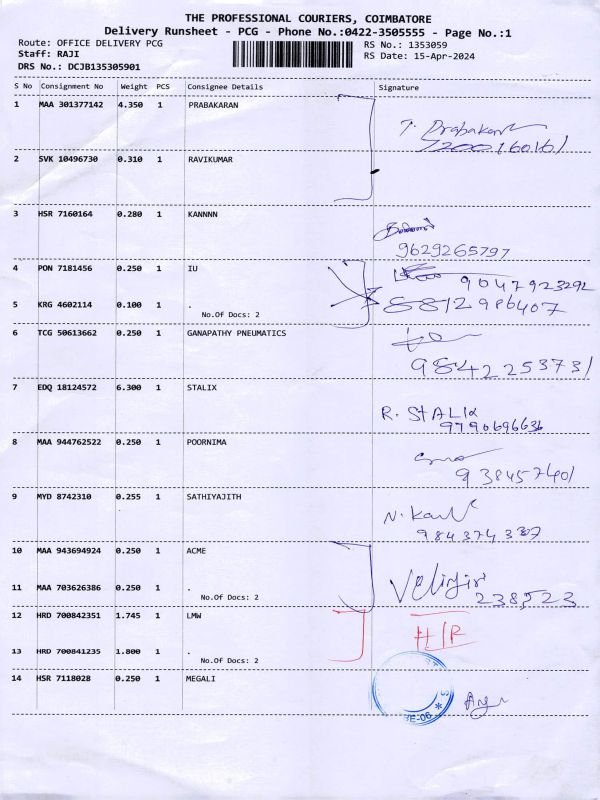 THE PROFESSIONAL COURIERS, COIMBATORE
Delivery Runsheet - PCG - Phone No.:0422-3505555 - Page No.:1
Route: OFFICE DELIVERY PCG
RS No.: 1353059
Staff: RAJI
RS Date: 15-Apr-2024
DRS No.: DCJB135305901
S No Consignment No Weight PCS Consignee Details Signature
1 MAA 301377142 4.350 1 PRABAKARAN
T. Prabakar
2 SVK 10496730 0.310 1 RAVIKUMAR
3 HSR 7160164 0.280 1 KANNNN
9629265797
4 PON 7181456 0.250 1 IU
9047923292
5 KRG 4602114 0.100 1 .
8812986407
No.Of Docs: 2
6 TCG 50613662 0.250 1 GANAPATHY PNEUMATICS
9842253731
7 EDQ 18124572 6.300 1 STALIX
R. STALIX
9790696636
8 MAA 944762522 0.250 1 POORNIMA
9384577401
9 MYD 8742310 0.255 1 SATHIYAJITH
10 MAA 943694924 0.250 1 ACME
11 MAA 703626386 0.250 1 .
238523
No.Of Docs: 2
12 HRD 700842351 1.745 1 LMW
H/R
13 HRD 700841235 1.800 1 .
No.Of Docs: 2
14 HSR 7118028 0.250 1 MEGALI